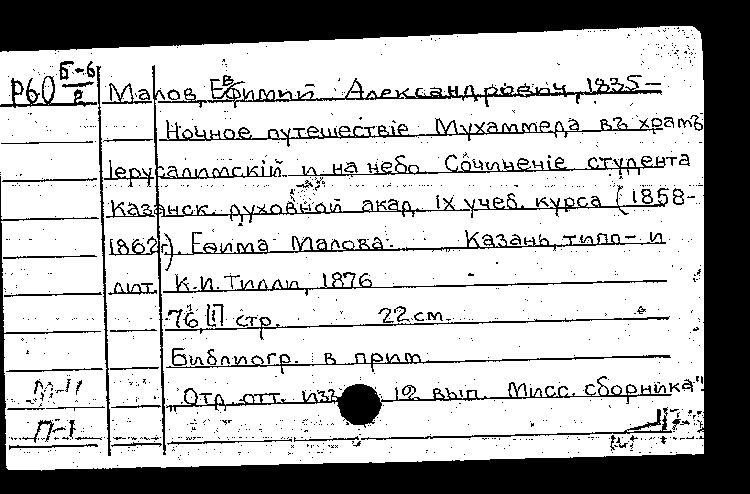 Р60 Б-6/2 Малов, Евфимий Александрович, 1835-
Ночное путешествіе Мухаммеда въ храмъ
Іерусалимскій и на небо Сочиненіе студента
Казанск. духовной акад. IX учеб. курса (1858-
1862г.). Евѳима Малова. Казань, типо- и
лит. К.И. Тилли, 1876
76, II стр. 22 см.
Библиогр. в прим.
М-11 "Отд. отт. из 12 вып. Мисс. сборника"
П-1